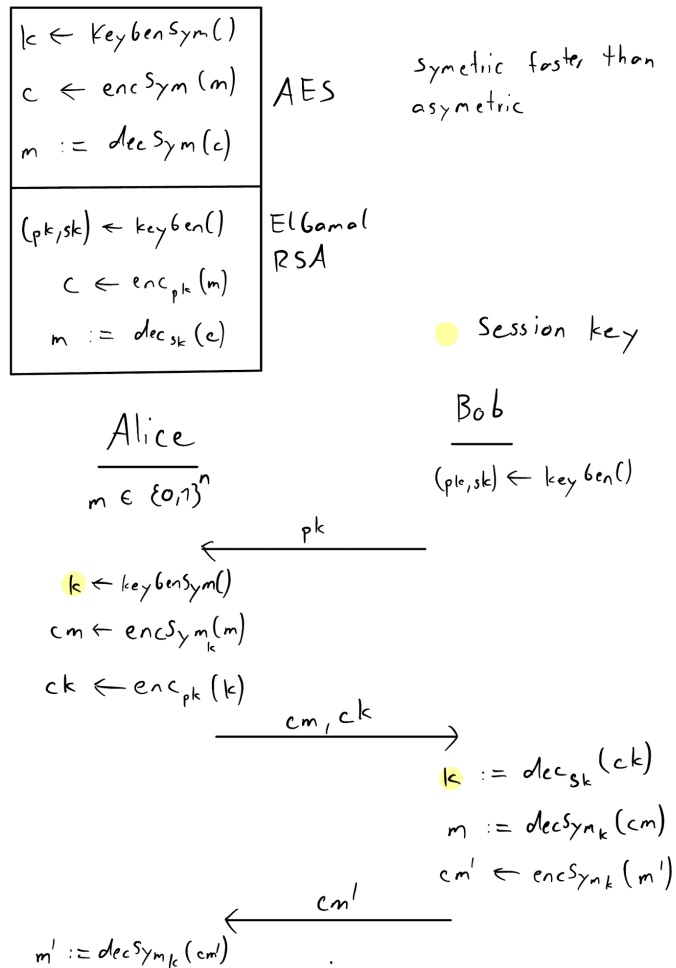 k ← KeyGenSym()
c ← encSym(m)
m := decSym(c)
AES
symetric faster than
asymetric
(pk,sk) ← keyGen()
c ← enc_pk(m)
m := dec_sk(c)
ElGamal
RSA
Session key
Alice
m ∈ {0,1}^n
Bob
(pk,sk) ← keyGen()
pk
k ← keyGenSym()
cm ← encSym_k(m)
ck ← enc_pk(k)
cm, ck
k := dec_sk(ck)
m := decSym_k(cm)
cm' ← encSym_k(m')
cm'
m' := decSym_k(cm')